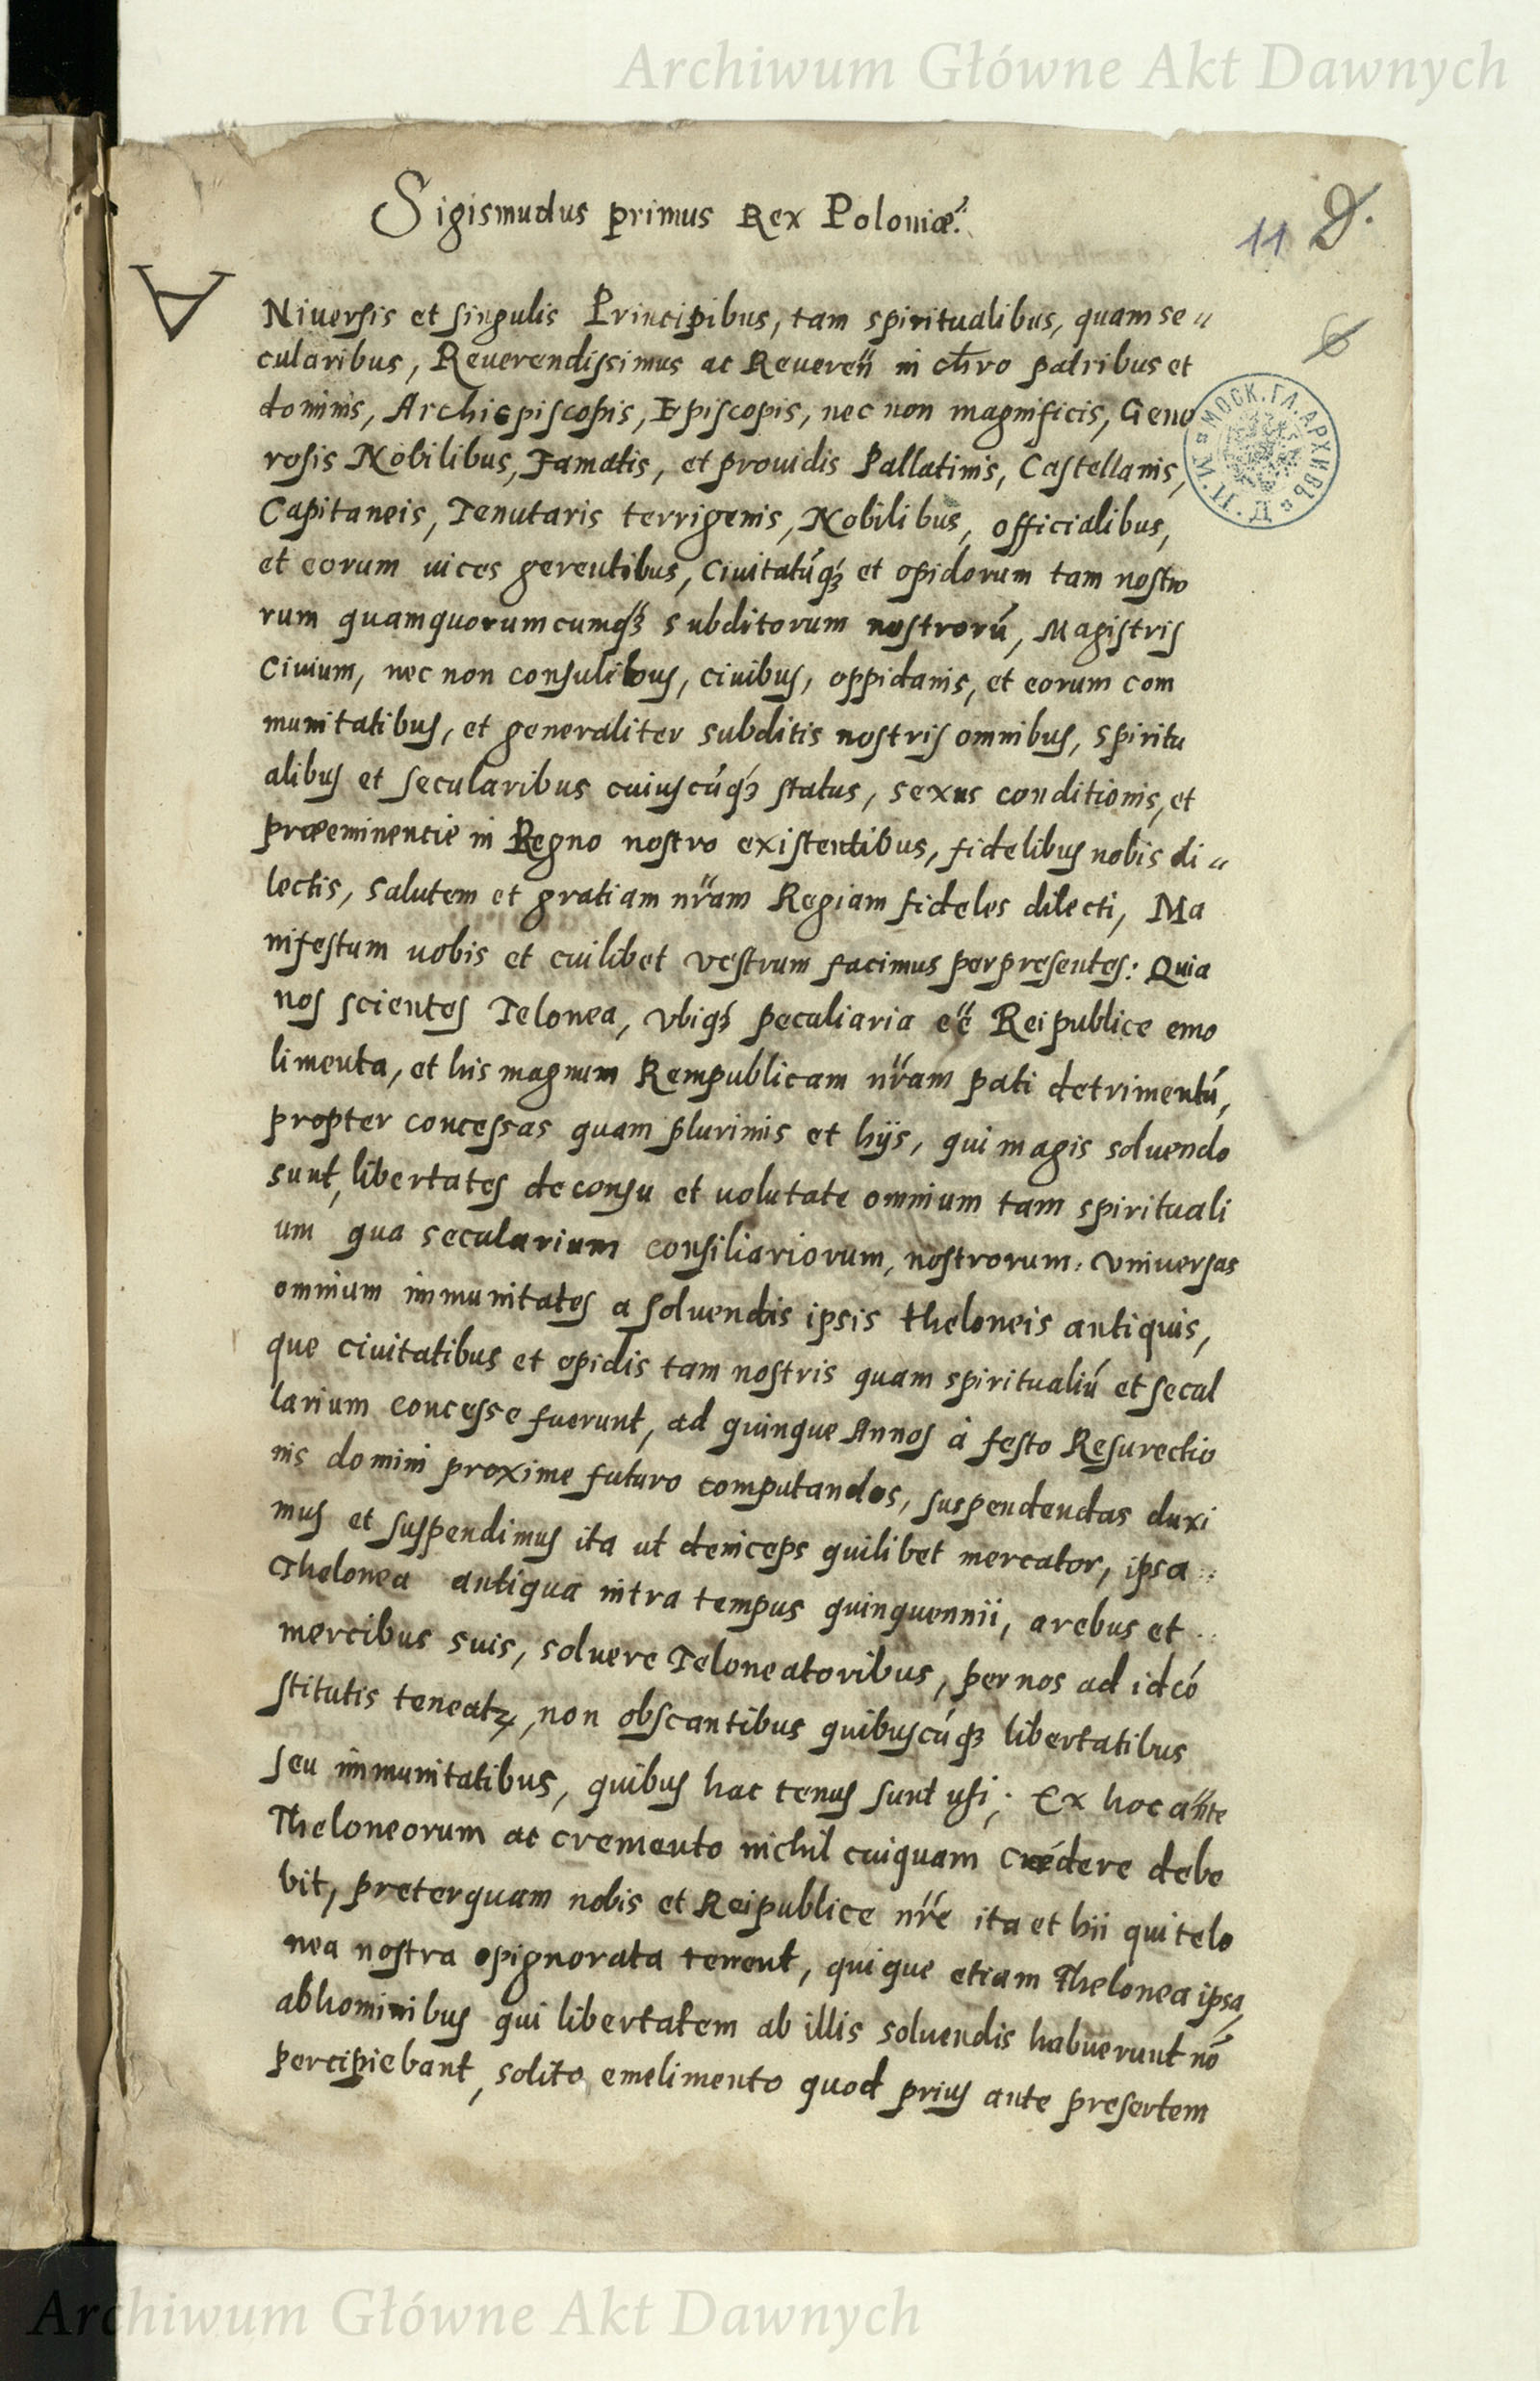 Archiwum Główne Akt Dawnych
Sigismudus primus Rex Poloniæ.
11 D.
6
Niversis et singulis Principibus, tam spiritualibus, quam se〃
cularibus, Reverendissimus ac Reveren̄ in chro patribus et
dominis, Archiepiscopis, Episcopis, nec non magnificis, Geno
rosis Nobilibus, Famatis, et providis Pallatinis, Castellanis,
Capitaneis, Tenutaris terrigenis, Nobilibus, officialibus,
et eorum vices gerentibus, civitatúqꝫ et opidorum tam nostro
rum quamquorumcumqꝫ subditorum nostrorú, Magistris
Civium, nec non consulibus, civibus, oppidanis, et eorum com
munitatibus, et generaliter subditis nostris omnibus, spiritu
alibus et secularibus cuiuscúqꝫ status, sexus conditionis, et
præeminencie in Regno nostro existentibus, fidelibus nobis di〃
lectis, salutem et gratiam nr̃am Regiam fideles dilecti, Ma
nifestum vobis et cuilibet vestrum facimus per presentes: Quia
nos scientes Telonea, vbiqꝫ peculiaria eē Reipublice emo
limenta, et his magnum Rempublicam nr̃am pati detrimentú,
propter concessas quam plurimis et hijs, qui magis solvendo
sunt, libertates de consu et volutate omnium tam spirituali
um qua secularium consiliariorum, nostrorum: vniversas
omnium immunitates a solvendis ipsis theloneis antiquis,
que civitatibus et opidis tam nostris quam spiritualiú et secul
larium concesse fuerunt, ad quinque Annos à festo Resurectio
nis domini proxime futuro computandos, suspendendas duxi
mus et suspendimus ita ut deinceps quilibet mercator, ipsa
Thelonea antiqua intra tempus quinquennii, a rebus et
mercibus suis, solvere Teloneatoribus, per nos ad id có
stitutis teneatꝝ, non obscantibus quibuscúqꝫ libertatibus
seu immunitatibus, quibus hac tenus sunt usi; Ex hoc añte
Theloneorum ac cremento nichil cuiquam cedere debe
bit, preterquam nobis et Reipublice nr̃e ita et hii qui telo
nea nostra opignorata tenent, quique etiam Thelonea ipsa,
ab hominibus qui libertatem ab illis solvendis habuerunt nó
percipiebant, solito emelimento quod prius ante presertem
Archiwum Główne Akt Dawnych